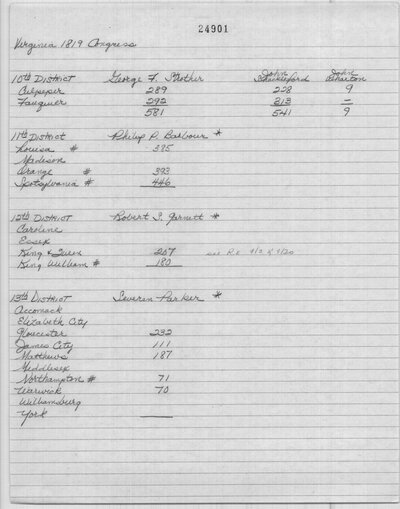 24901
Virginia 1819 Congress
10th District George F. Strother John Shackleford John Wharton
Culpeper 289 228 9
Fauquier 292 213 —
581 541 9
11th District Philip P. Barbour *
Louisa # 395
Madison
Orange # 393
Spotsylvania # 446
12th District Robert S. Garnett *
Caroline
Essex
King & Queen 207 see R.E. 4/2 & 4/20
King William # 180
13th District Severn Parker *
Accomack
Elizabeth City
Gloucester 232
James City 111
Matthews 187
Middlesex
Northampton # 71
Warwick 70
Williamsburg
York